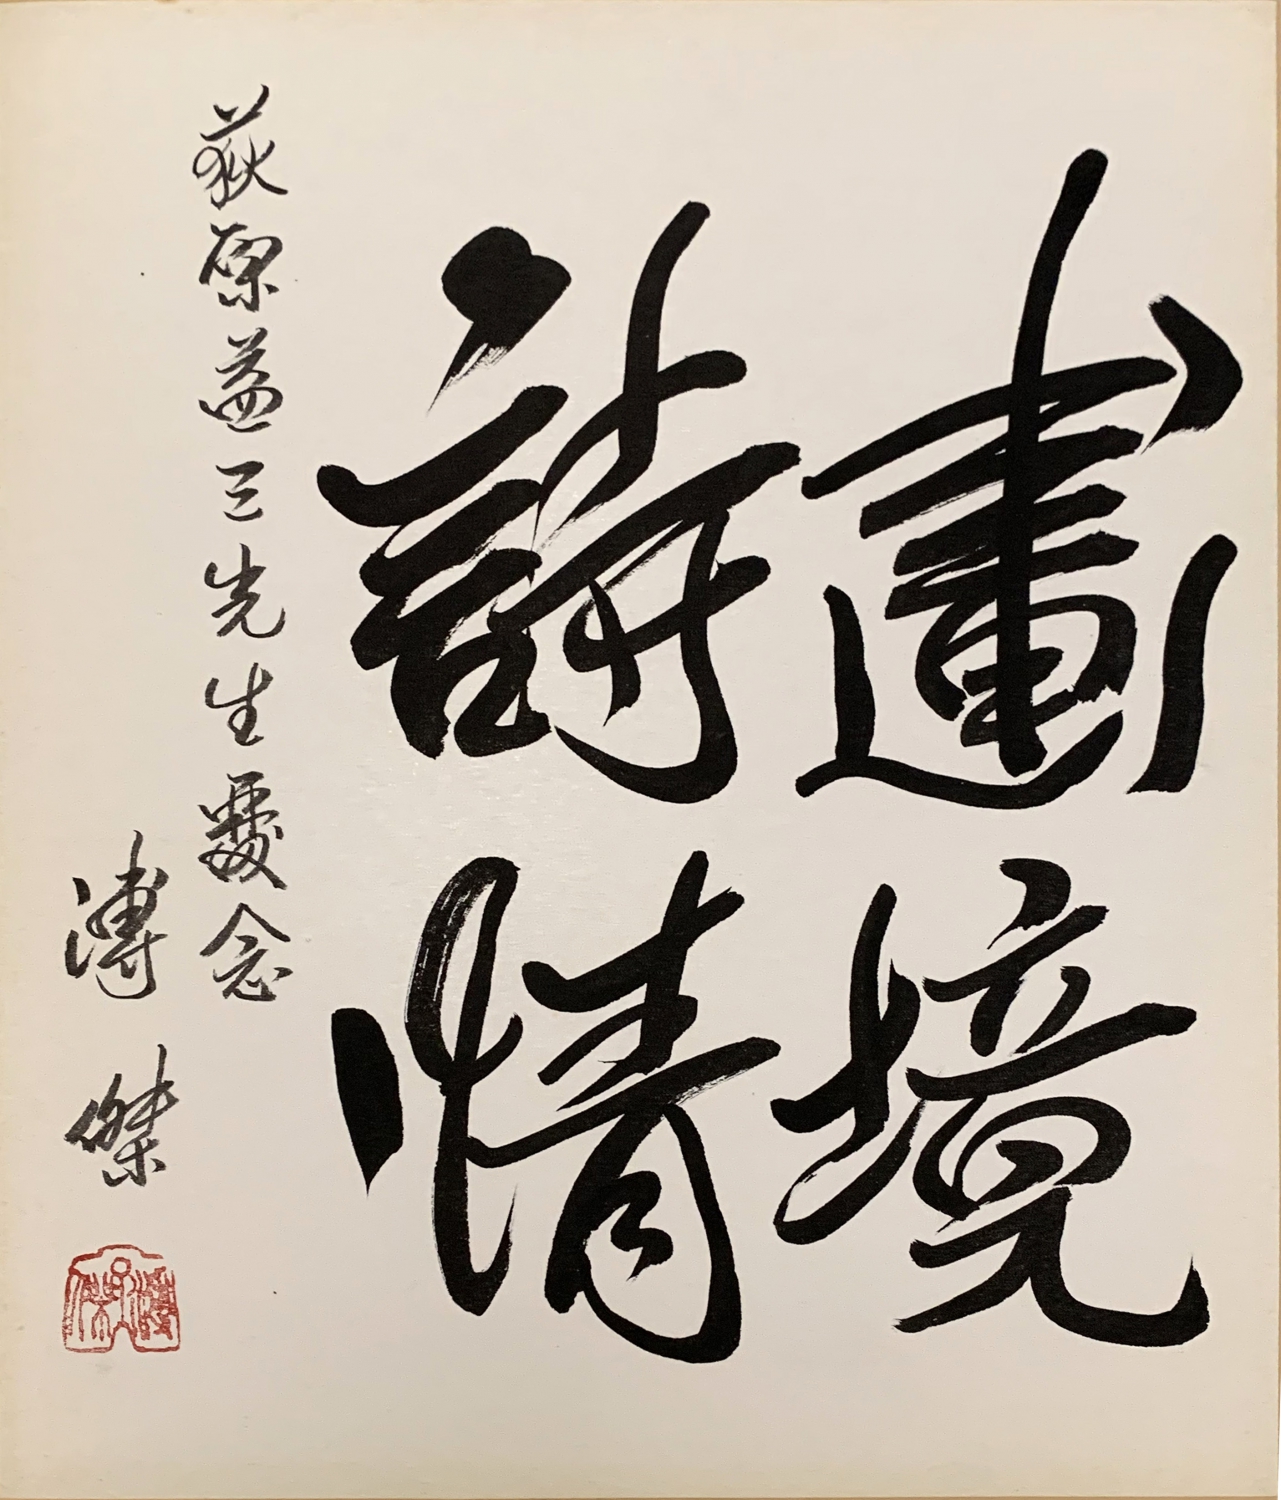 畵境
詩情
荻原益三先生念
溥傑